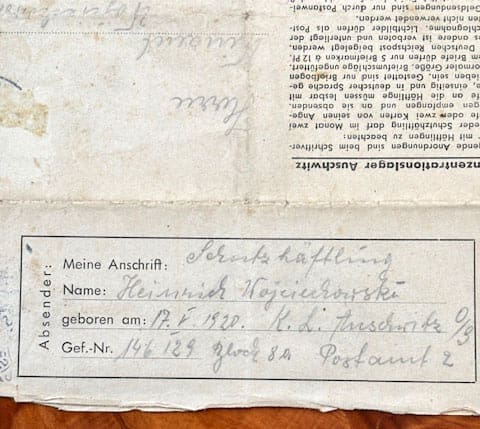 nzentrationslager Auschwitz
gende Anordnungen sind beim Schriftver-
r mit Häftlingen zu beachten:
eder Schutzhäftling darf im Monat zwei
efe oder zwei Karten von seinen Ange-
igen empfangen und an sie absenden.
efe an die Häftlinge müssen lesbar mit
e, einseitig und in deutscher Sprache ge-
rieben sein. Gestattet sind nur
ormaler Größe. Briefumschläge ungefüttert.
em Briefe dürfen nur 5 Briefmarken à 12 Pf.
Deutsche Reichspost beigelegt werden.
es andere ist verboten und unterliegt der
schlagnahme. Lichtbilder dürfen als Post-
ten nicht verwendet werden.
Geldsendungen sind nur durch
Herrn
Absender:
Meine Anschrift: Schutzhäftling
Name: Heinrich Wojciechowski
geboren am: 17. V. 1920. K. L. Auschwitz O/S
Gef.-Nr. 146129 Block 8a Postamt 2